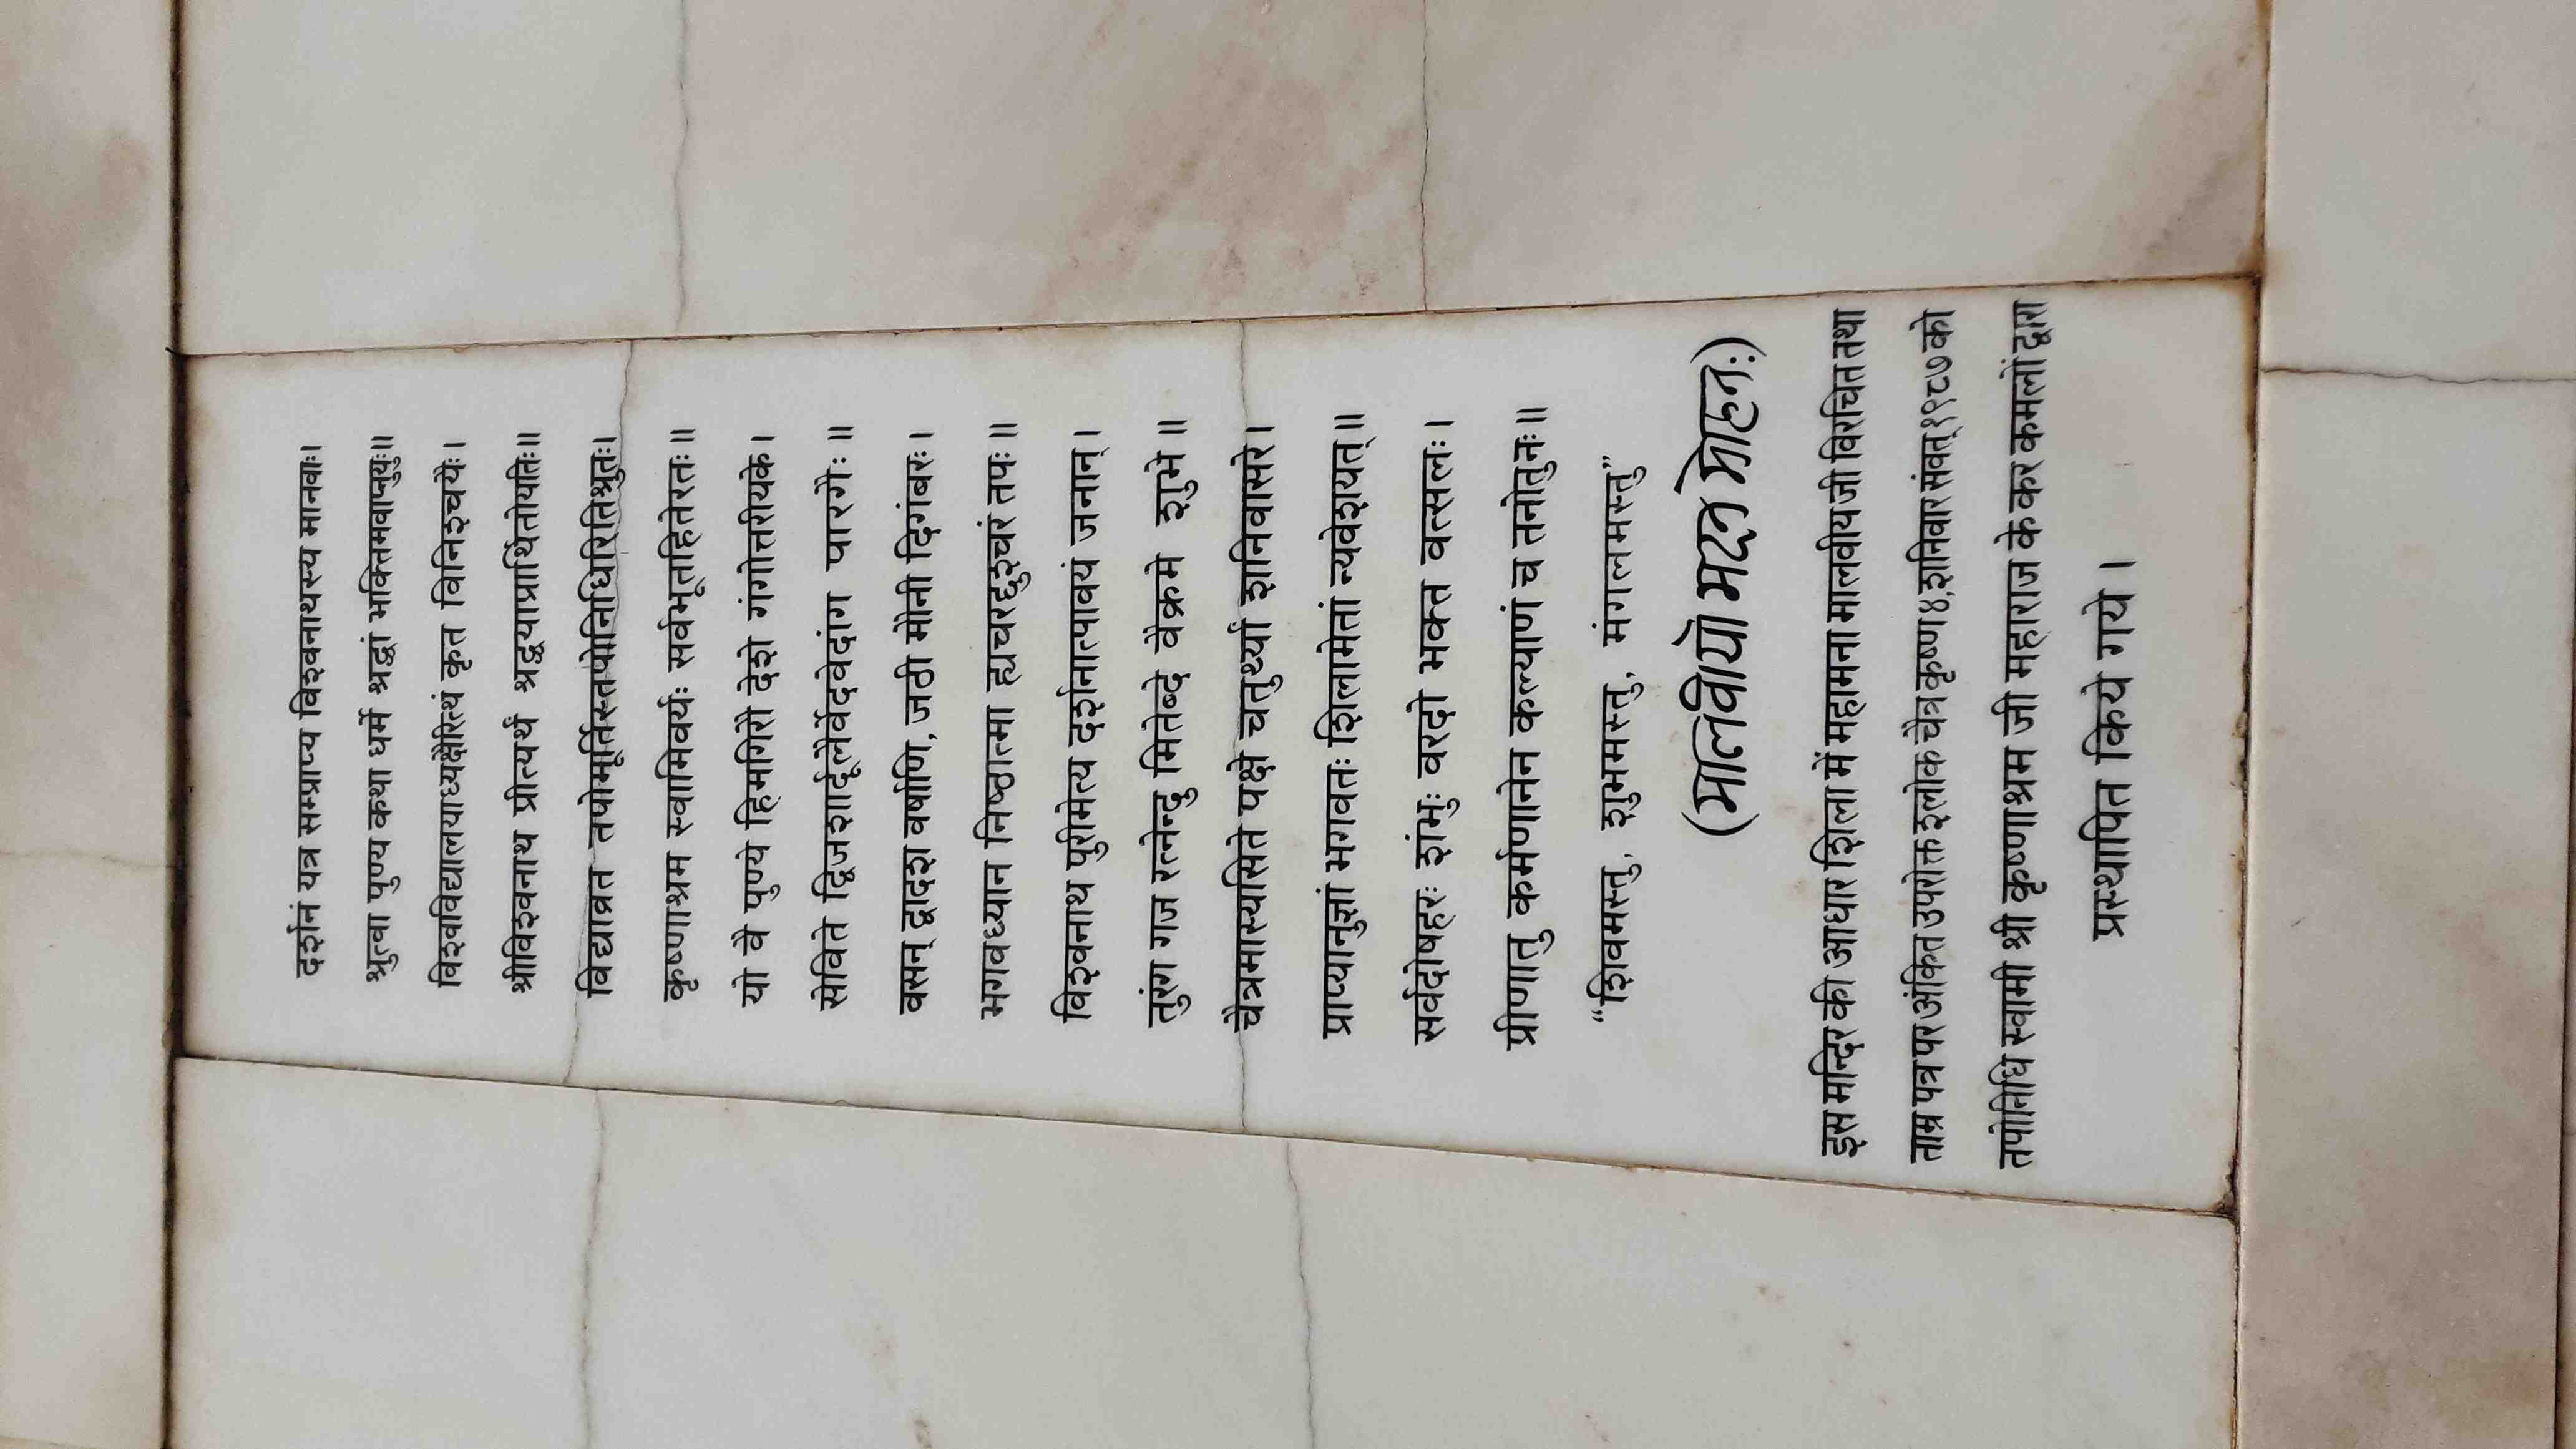 दर्शनं यत्र सम्प्राप्य विश्वनाथस्य मानवाः।
श्रुत्वा पुण्य कथा धर्मे श्रद्धां भक्तिमवाप्नुयुः॥
विश्वविद्यालयाध्यक्षैरित्थं कृत विनिश्चयैः।
श्रीविश्वनाथ प्रीत्यर्थं श्रद्धयाप्रार्थितोयतिः॥
विद्याव्रत तपोमूर्तिस्तपोनिधिरितिश्रुतः।
कृष्णाश्रम स्वामिवर्यः सर्वभूतहितेरतः॥
यो वै पुण्ये हिमगिरौ देशे गंगोत्तरीयके।
सेविते द्विजशार्दूलैर्वेदवेदांग पारगैः॥
वसन् द्वादश वर्षाणि, जटी मौनी दिगंबरः।
भगवध्यान निष्ठात्मा ह्यचरद्दुश्चरं तपः॥
विश्वनाथ पुरीमेत्य दर्शनात्पावयं जनान्।
तुरंग गज रत्नेन्दु मितेब्दे वैक्रमे शुभे॥
चैत्रमास्यसिते पक्षे चतुर्थ्यां शनिवासरे।
प्राप्यानुज्ञां भगवतः शिलामेतां न्यवेशयत्॥
सर्वदोषहरः शंभुः वरदो भक्त वत्सलः।
प्रीणातु कर्मणानेन कल्याणं च तनोतुनः॥
"शिवमस्तु, शुभमस्तु, मंगलमस्तु"
(मालवीयो मदन मोहनः)
इस मन्दिर की आधार शिला में महामना मालवीय जी विरचित तथा
ताम्र पत्र पर अंकित उपरोक्त श्लोक चैत्र कृष्ण ४, शनिवार संवत् १९८७ को
तपोनिधि स्वामी श्री कृष्णाश्रम जी महाराज के कर कमलों द्वारा
प्रस्थापित किये गये।